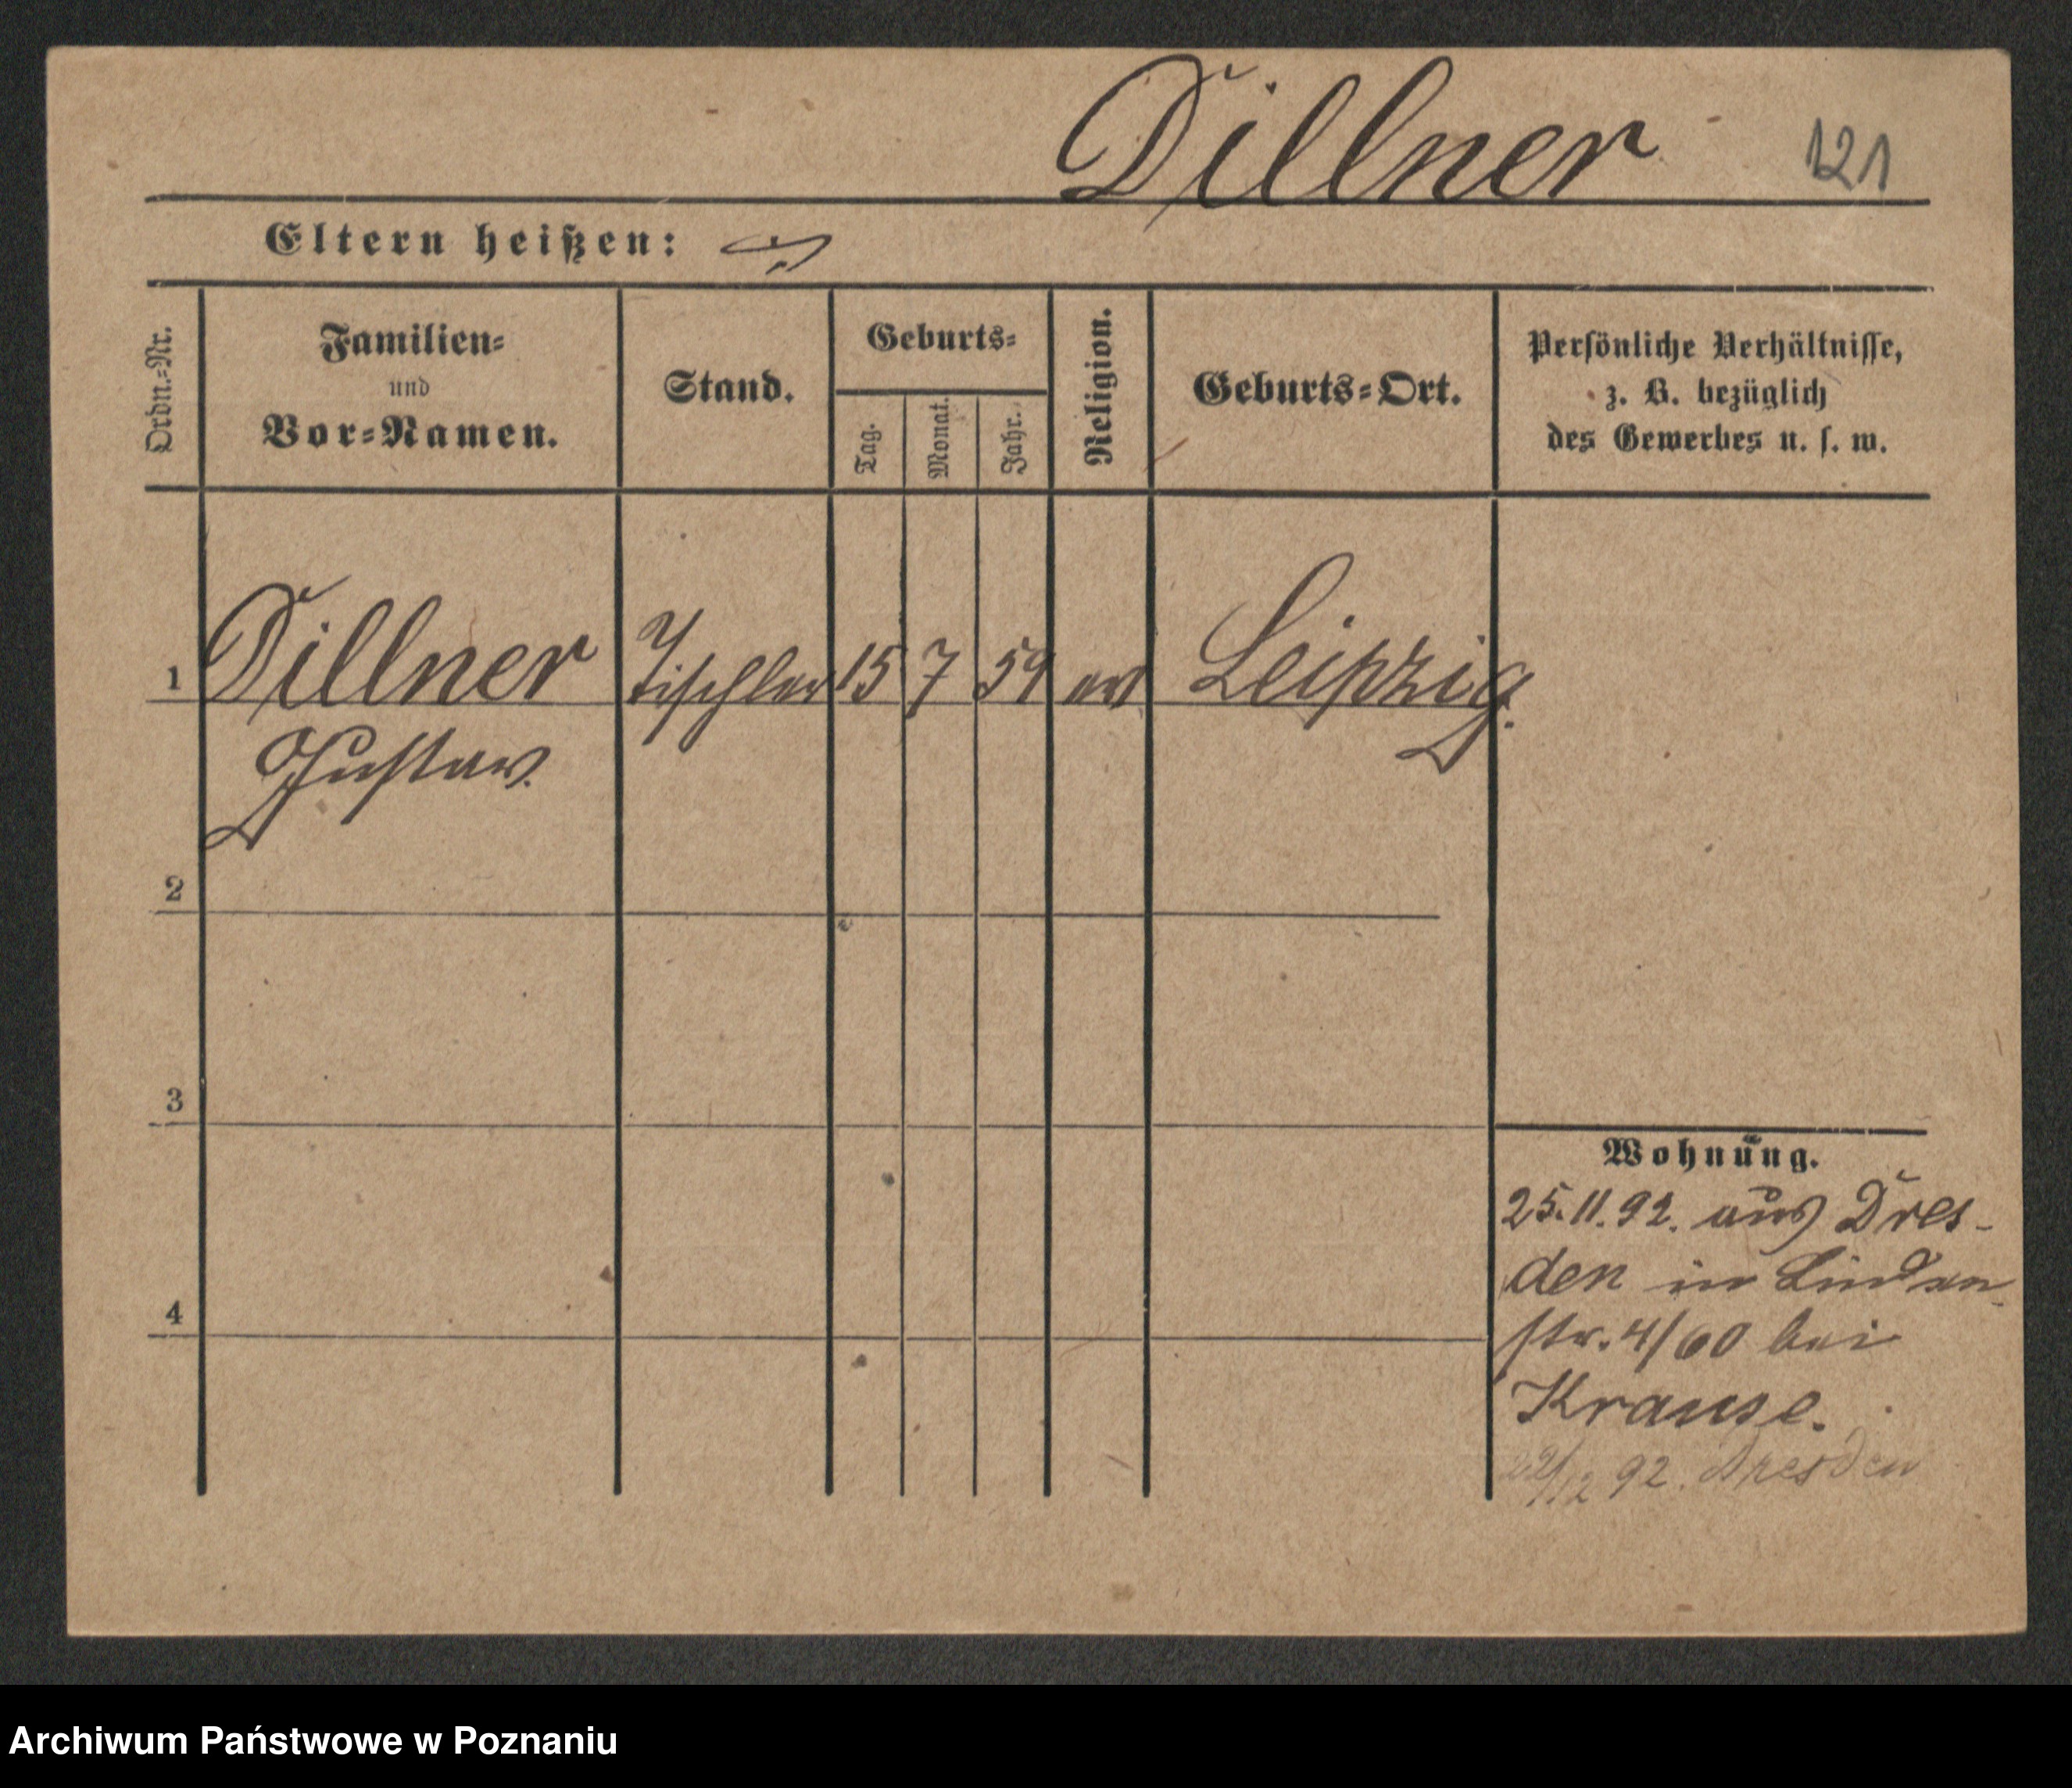 Dillner 121
Eltern heißen:
Ordn.-Nr.
Familien-
und
Vor-Namen.
Stand.
Geburts-
Tag.
Monat.
Jahr.
Religion.
Geburts-Ort.
Persönliche Verhältnisse,
z. B. bezüglich
des Gewerbes u. s. w.
1 Dillner Tischler 15 7 59 ev Leipzig.
Gustav.
2
3
4
Wohnung.
25.11.92. aus Dres-
den in Linden-
str. 4/60 bei
Krause.
12 92. Dresden
Archiwum Państwowe w Poznaniu